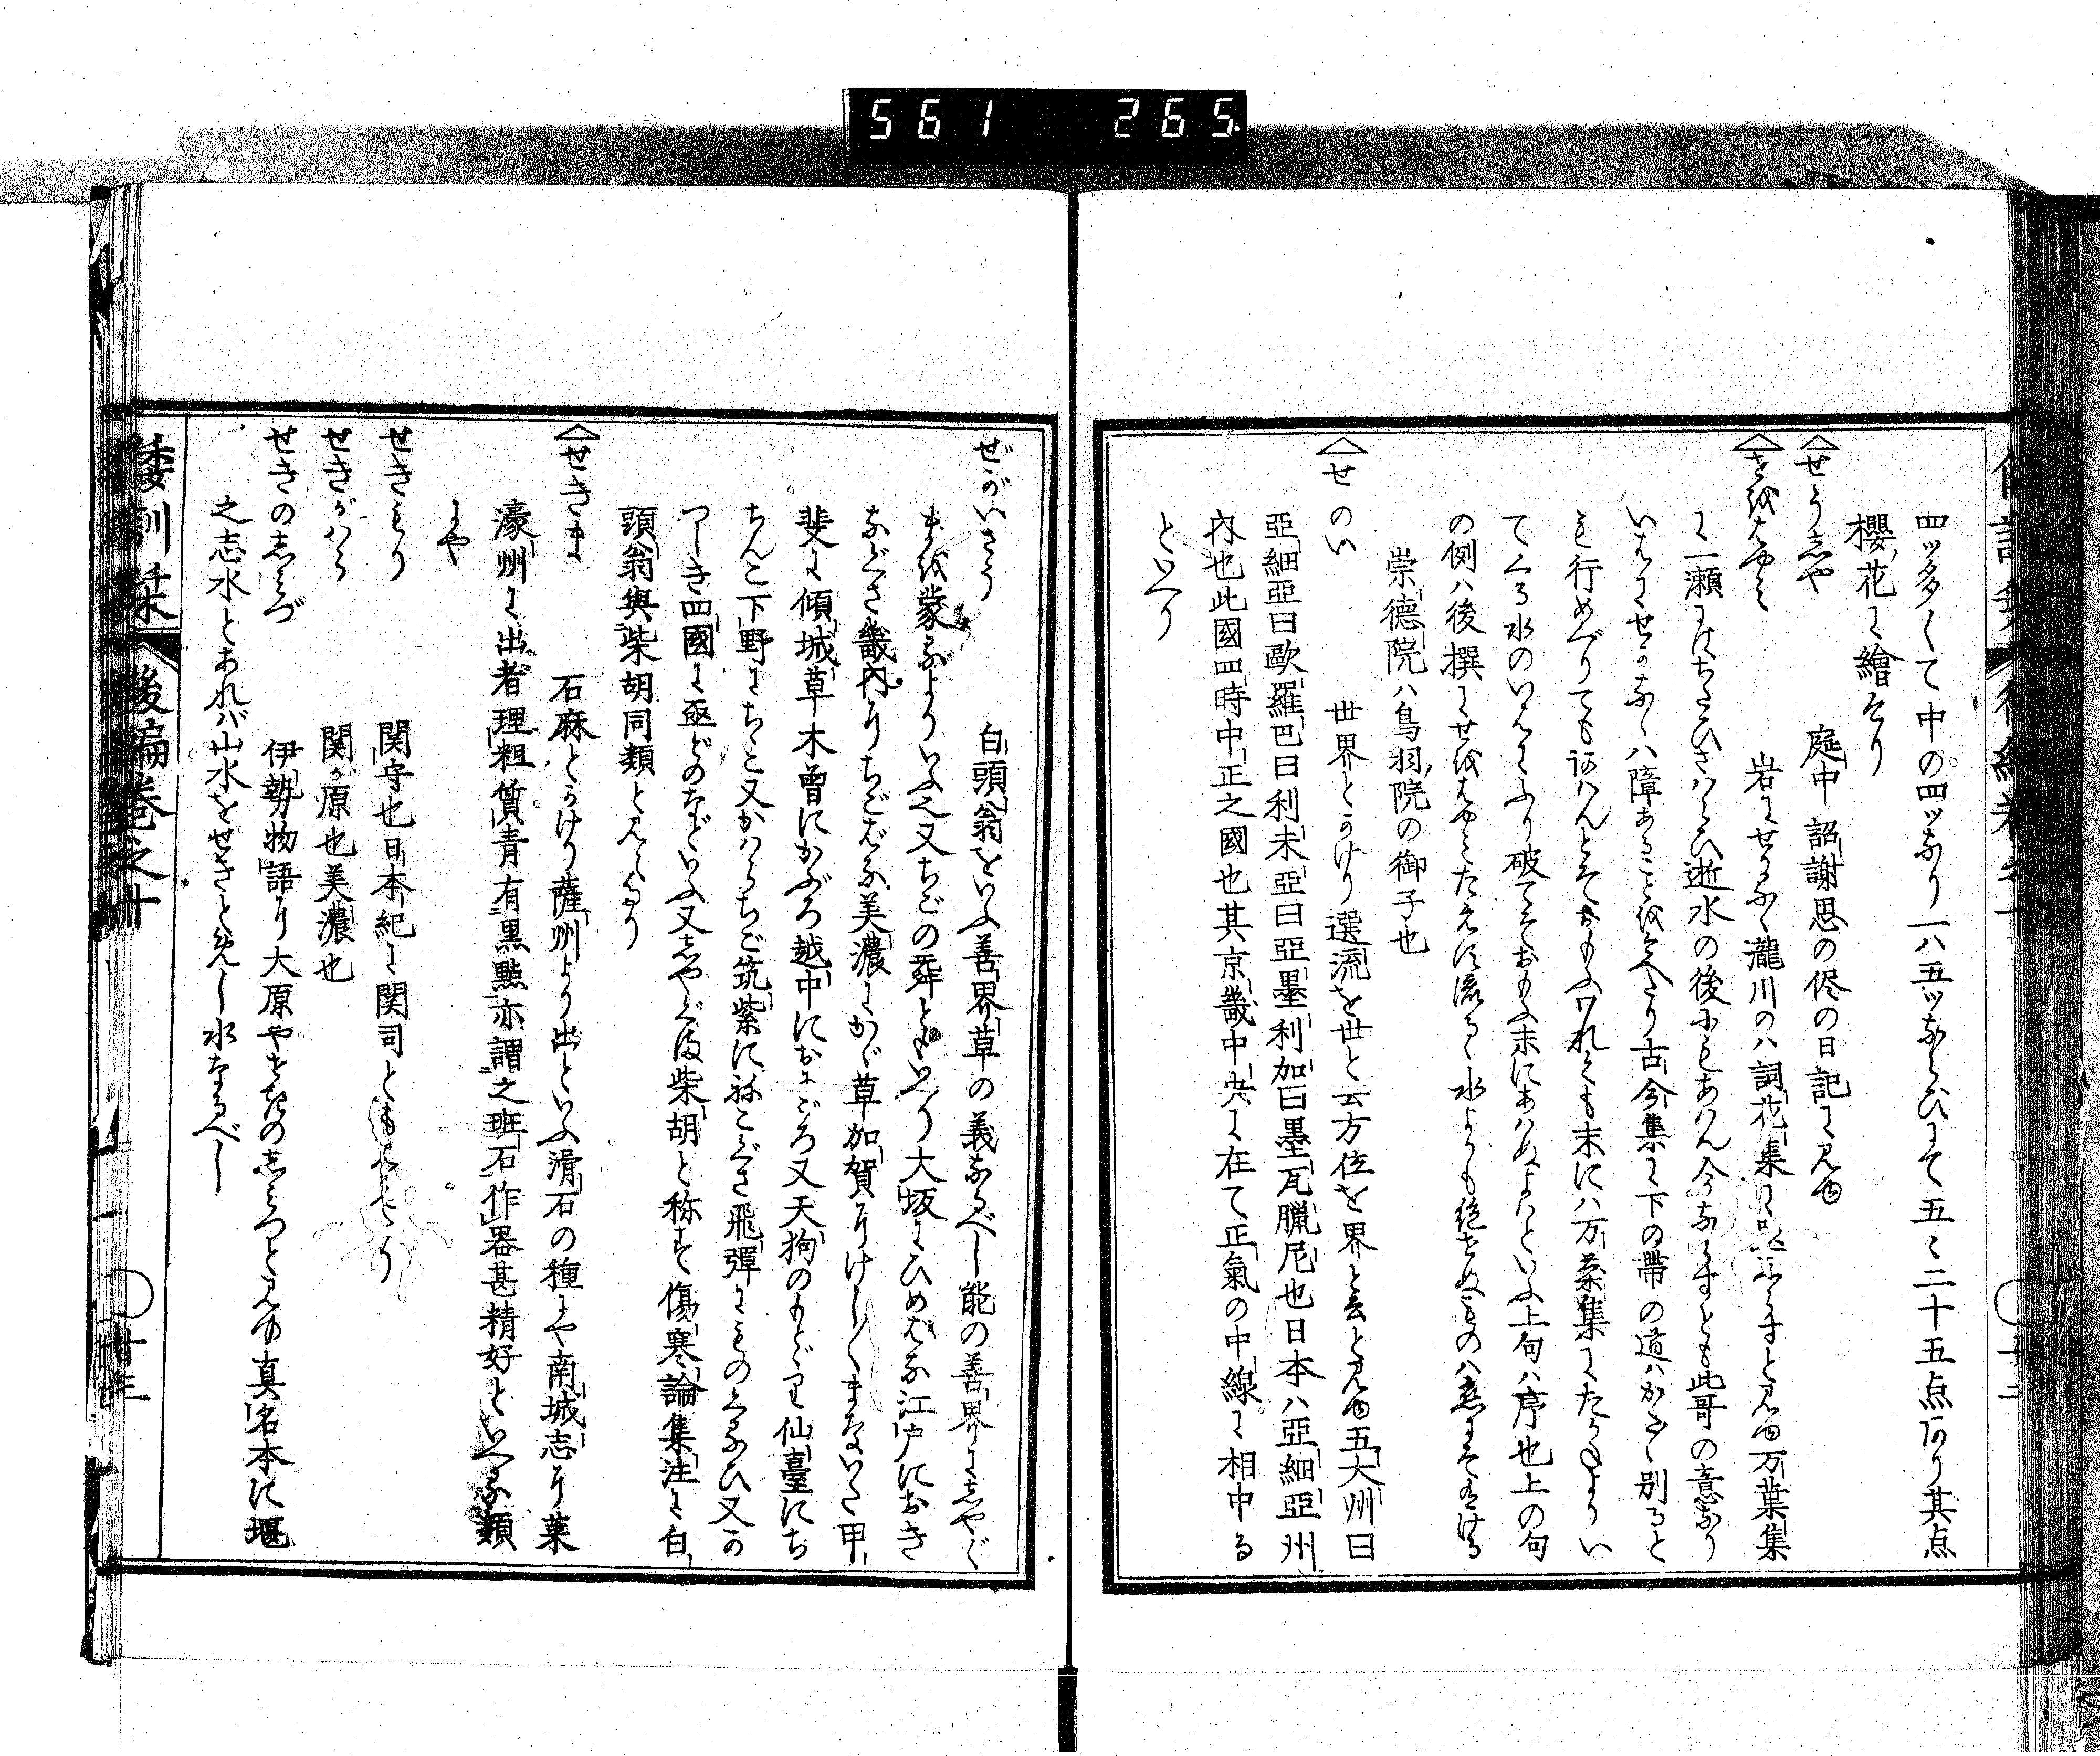 561 265
四ッ多くて中の四ッなり一八五ッならひにて五〻二十五点有り其点
櫻花に繪そり
せうしや 庭中 詔謝恩の侭の日記に見ゆ
せをはやみ 岩にせかるゝ瀧川のハ詞花集に見ゆ万葉集
に一瀬にはちたひさハらひ逝水の後にもあはん今ならずとも此哥の意なり
いはにせかるゝハ障あることをいへり古今集に下の帶の道ハかたかた別ると
も行めぐりても逢はんとそおもふわれても末にハ万葉集にたかねよりい
てくる水のいはにふり破てそおもふ末にあハぬよハといふ上句ハ序也上の句
の例ハ後撰にせをはやみたえず流るゝ水よりも絶せぬものハ恋にそ有ける
崇德院ハ鳥羽院の御子也
せのい 世界とかけり遷流を世と云方位を界と云と見ゆ五大州曰
亞細亞曰歐羅巴曰利未亞曰亞墨利加曰墨瓦臘尼也日本ハ亞細亞州
内也此國四時中正之國也其京畿中央に在て正氣の中線に相中る
といへり
ぜがいさう 白頭翁をいふ善界草の義なるべし能の善界にしやぐ
まを蒙るよりいふ又ちごの舞ともいへり大坂にひめばな江戸におき
なぐさ畿内にちごばな美濃にかぐ草加賀にけし〳〵まないた甲
斐に傾城草木曽にかぶろ越中におにごろ又天狗のもとどり仙臺にち
ちんこ下野にちこ又かハらちご筑紫にねこぐさ飛彈にものくるひ又つ
つしき四國に亟どのなどいふ又しやぐま柴胡と称す傷寒論集注に白
頭翁與柴胡同類と見えたり
せきま 石麻とかけり薩州より出といふ滑石の種にや南城志に莱
濠州に出者理粗質青有黒點亦謂之班石作器甚精好といへる類
にや
せきもり 関守也日本紀に関司とも
せきがハら 関ヶ原也美濃也
せきのしみづ 伊勢物語に大原やせきのしみつと見ゆ真名本に堰
之志水とあれバ山水をせきとめし水なるべし
倭訓栞 後編巻之十
十三